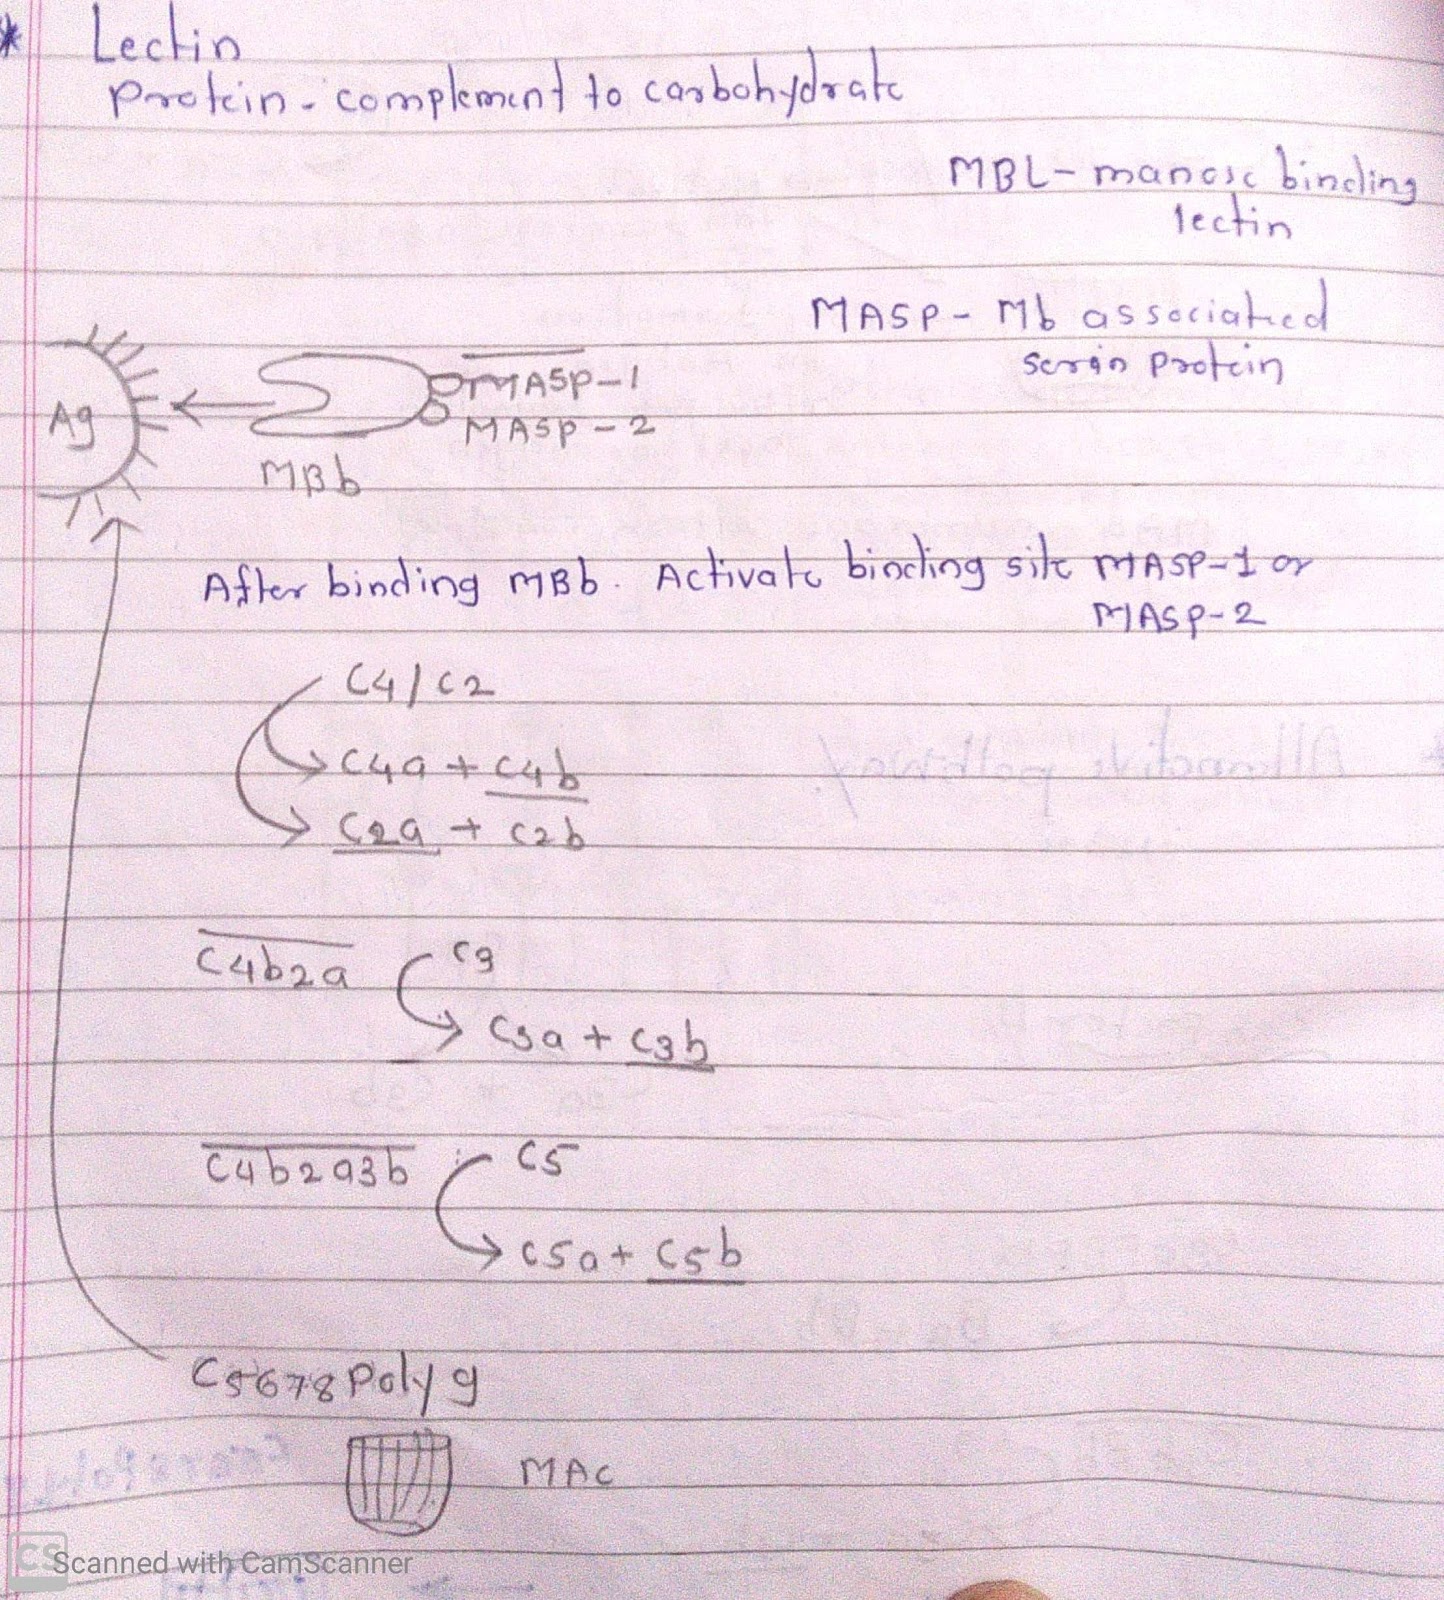 * Lectin
Protein - complement to carbohydrate
MBL - manose binding
lectin
MASP - Mb associated
serin Protein
Ag
MASP-1
MASP-2
MBb
After binding MBb. Activate binding site MASP-1 or
MASP-2
C4/C2
C4a + C4b
C2a + C2b
C4b2a
C3
C3a + C3b
C4b2a3b
C5
C5a + C5b
C5678 Poly 9
MAC
CS Scanned with CamScanner